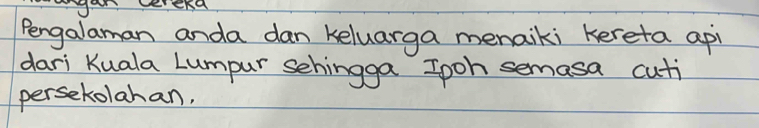 Cereka
Pengalaman anda dan keluarga menaiki kereta api
dari Kuala Lumpur sehingga Ipoh semasa cuti
persekolahan.